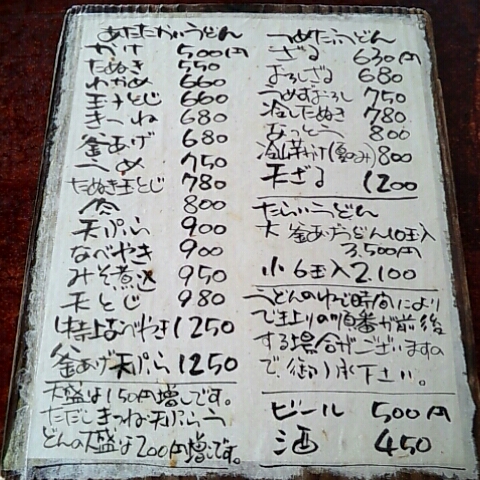 あたたかいうどん
かけ 500円
たぬき 550
わかめ 660
玉子とじ 660
きつね 680
釜あげ 680
うめ 750
たぬき玉とじ 780
肉 800
天ぷら 900
なべやき 900
みそ煮込 950
天とじ 980
特上なべやき 1250
釜あげ天ぷら 1250
大盛は150円増しです。
ただしきつね・天ぷらう
どんの大盛は200円増しです。
つめたいうどん
ざる 630円
おろしざる 680
うめずおろし 750
冷したぬき 780
なっとう 800
冷山芋かけ(夏のみ) 800
天ざる 1200
たらいうどん
大 釜あげうどん10玉入
3.500円
小 6玉入 2.100
うどんのゆで時間により
でき上りの順番が前後
する場合がございますの
で、御了承下さい。
ビール 500円
酒 450